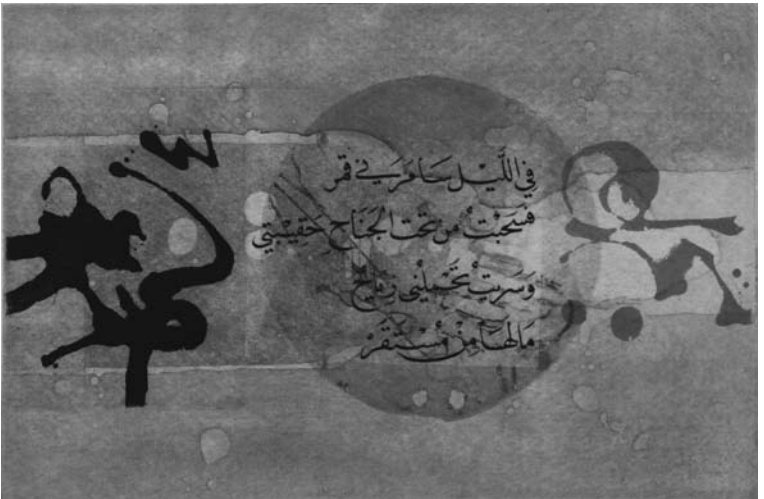 في اللَّيْل سَامَرَني قمر
فسَحَبْتُ من تحت الجَنَاح حَقيبَتي
وَسَريتُ تحْمِلُني رِيَاحٌ
مَا لهَا مِنْ مُسْتَقَرْ